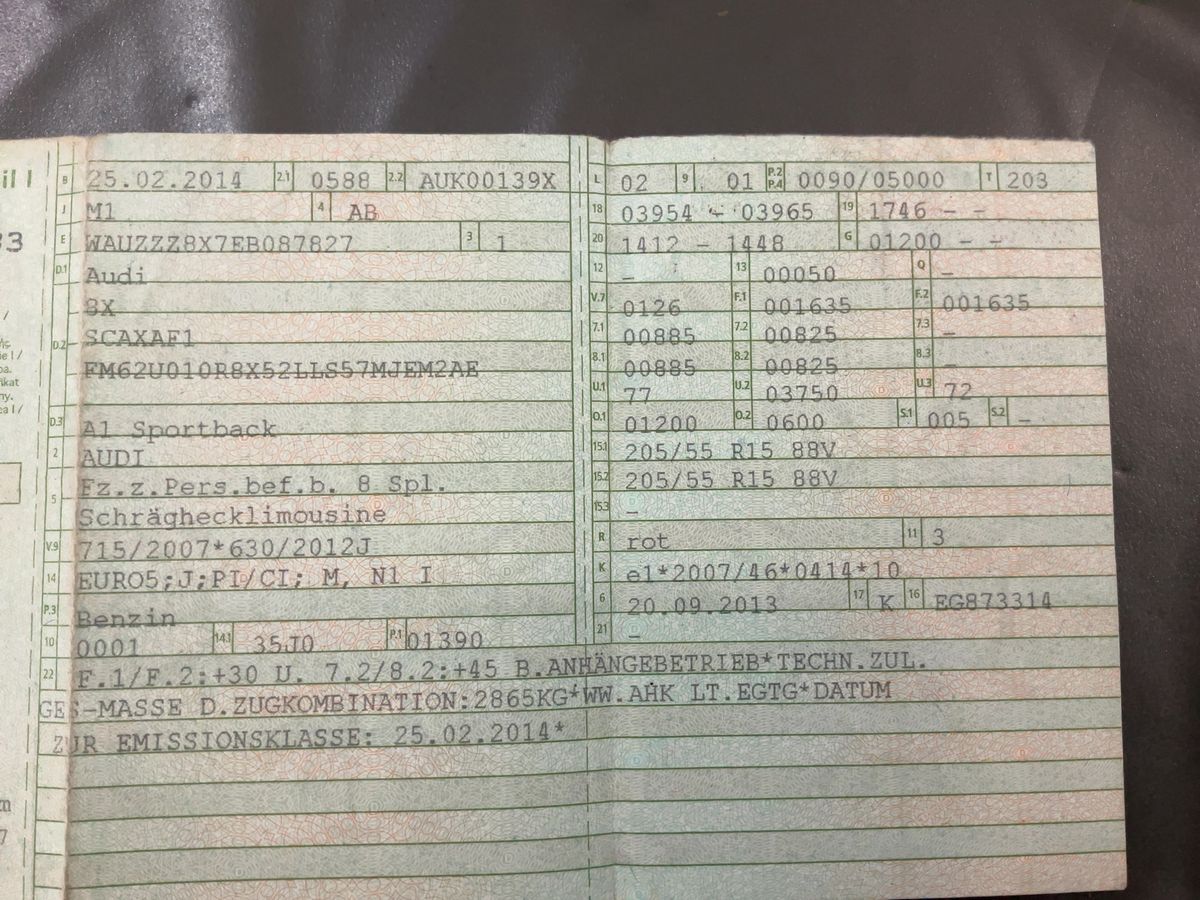 il I
B 25.02.2014 2.1 0588 2.2 AUK00139X
J M1 4 AB
E WAUZZZ8X7EB087827 3 1
D.1 Audi
8X
D.2 SCAXAF1
FM62U010R8X52LLS57MJEM2AE
D.3 A1 Sportback
2 AUDI
Fz.z.Pers.bef.b. 8 Spl.
5 Schräghecklimousine
V.9 715/2007*630/2012J
14 EURO5;J;PI/CI; M, N1 I
P.3 Benzin
10 0001 14.1 35J0 P.1 01390
L 02 9 01 P.2 P.4 0090/05000 T 203
18 03954 - 03965 19 1746 - -
20 1412 - 1448 G 01200 - -
12 - 13 00050 Q -
V.7 0126 F.1 001635 F.2 001635
7.1 00885 7.2 00825 7.3 -
8.1 00885 8.2 00825 8.3 -
U.1 77 U.2 03750 U.3 72
O.1 01200 O.2 0600 S.1 005 S.2 -
15.1 205/55 R15 88V
15.2 205/55 R15 88V
15.3 -
R rot 11 3
K e1*2007/46*0414*10
6 20.09.2013 17 K 16 EG873314
21 -
22 F.1/F.2:+30 U. 7.2/8.2:+45 B.ANHÄNGEBETRIEB*TECHN.ZUL.
GES-MASSE D.ZUGKOMBINATION:2865KG*WW.AHK LT.EGTG*DATUM
ZUR EMISSIONSKLASSE: 25.02.2014*